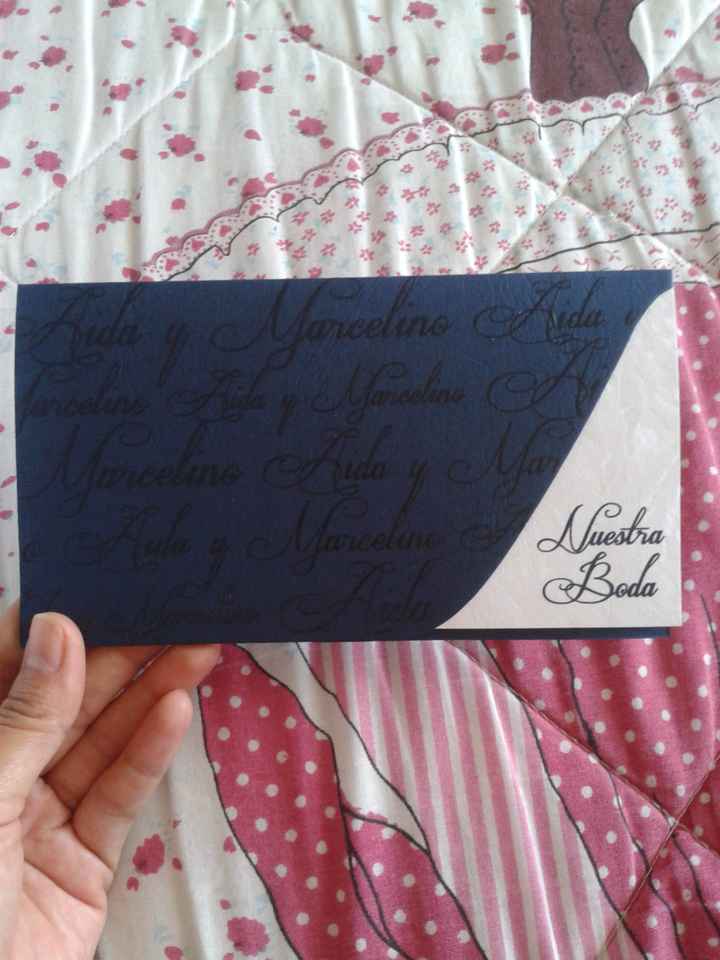 Aida y Marcelino Aida y
Marcelino Aida y Marcelino
Marcelino Aida y Mar
Aida y Marcelino
Marcelino Aida
Nuestra
Boda